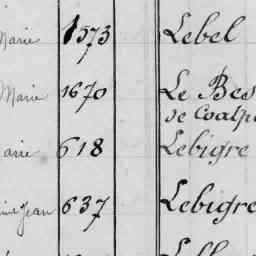 Marie 1573 Lebel
Marie 1670 Le Bes
de Coatp
arie 618 Lebigre
Jean 637 Lebigre